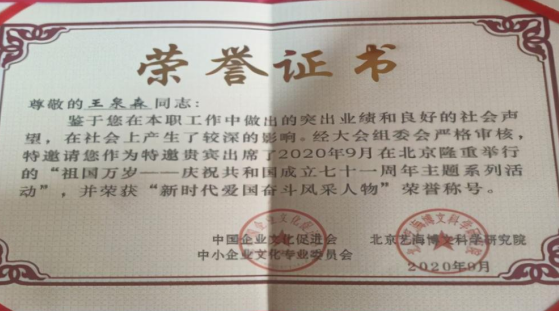 荣誉证书
尊敬的王泉森同志:
鉴于您在本职工作中做出的突出业绩和良好的社会声
望,在社会上产生了较深的影响。经大会组委会严格审核,
特邀请您作为特邀贵宾出席了2020年9月在北京隆重举行
的“祖国万岁——庆祝共和国成立七十一周年主题系列活
动”,并荣获“新时代爱国奋斗风采人物”荣誉称号。
中国企业文化促进会 北京艺海博文科学研究院
中小企业文化专业委员会 2020年9月